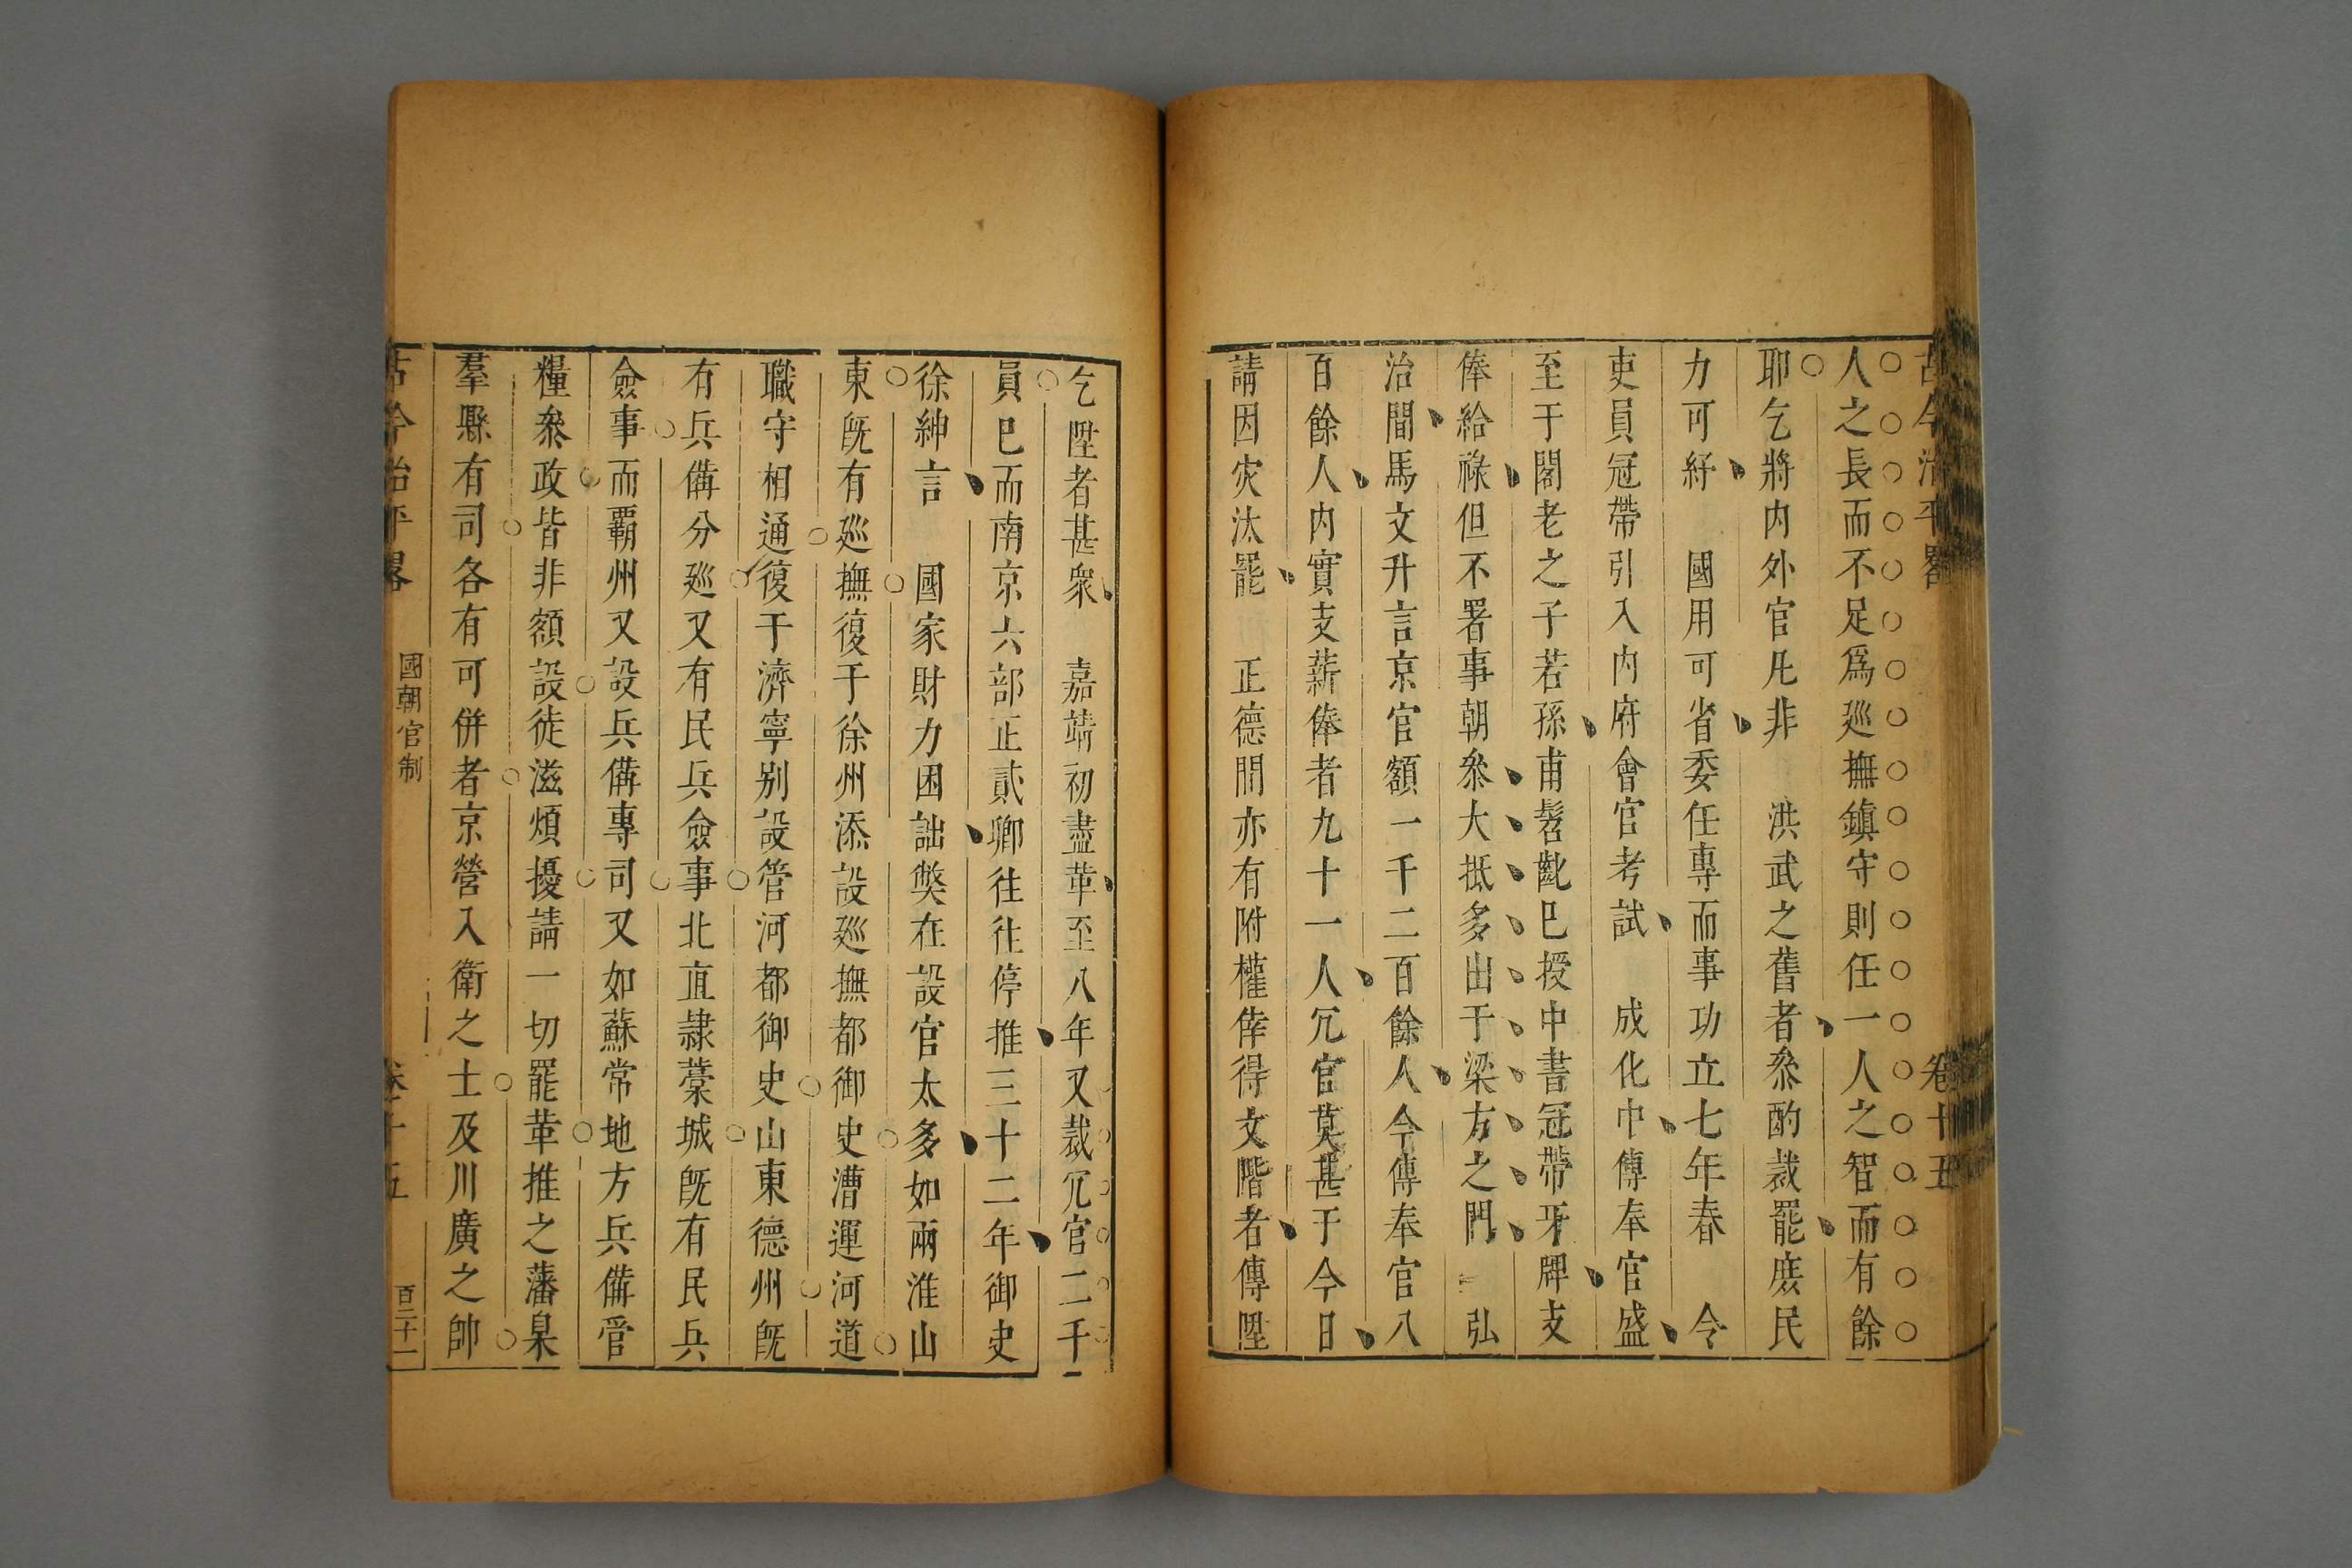 古今治平畧 卷十五
人之長而不足爲廵撫鎮守則任一人之智而有餘
耶乞將内外官凡非 洪武之舊者叅酌裁罷庻民
力可紓 國用可省委任專而事功立七年春 令
吏員冠帶引入内府會官考試 成化中傳奉官盛
至于閣老之子若孫甫髫齔巳授中書冠帶牙牌支
俸給祿但不署事朝叅大抵多出于梁方之門 弘
治間馬文升言京官額一千二百餘人今傳奉官八
百餘人内實支薪俸者九十一人冗官莫甚于今日
請因灾汰罷 正德間亦有附權倖得文階者傳陞
乞陞者甚衆 嘉靖初盡革至八年又裁冗官二千
員巳而南京六部正貳卿往往停推三十二年御史
徐紳言 國家財力困詘獘在設官太多如兩淮山
東既有廵撫復于徐州添設廵撫都御史漕運河道
職守相通復于濟寧别設管河都御史山東德州既
有兵備分廵又有民兵僉事北直隷藁城既有民兵
僉事而覇州又設兵備專司又如蘇常地方兵備管
糧叅政皆非額設徒滋煩擾請一切罷革推之藩臬
羣縣有司各有可併者京營入衛之士及川廣之帥
古今治平畧 國朝官制 卷十五 百二十一